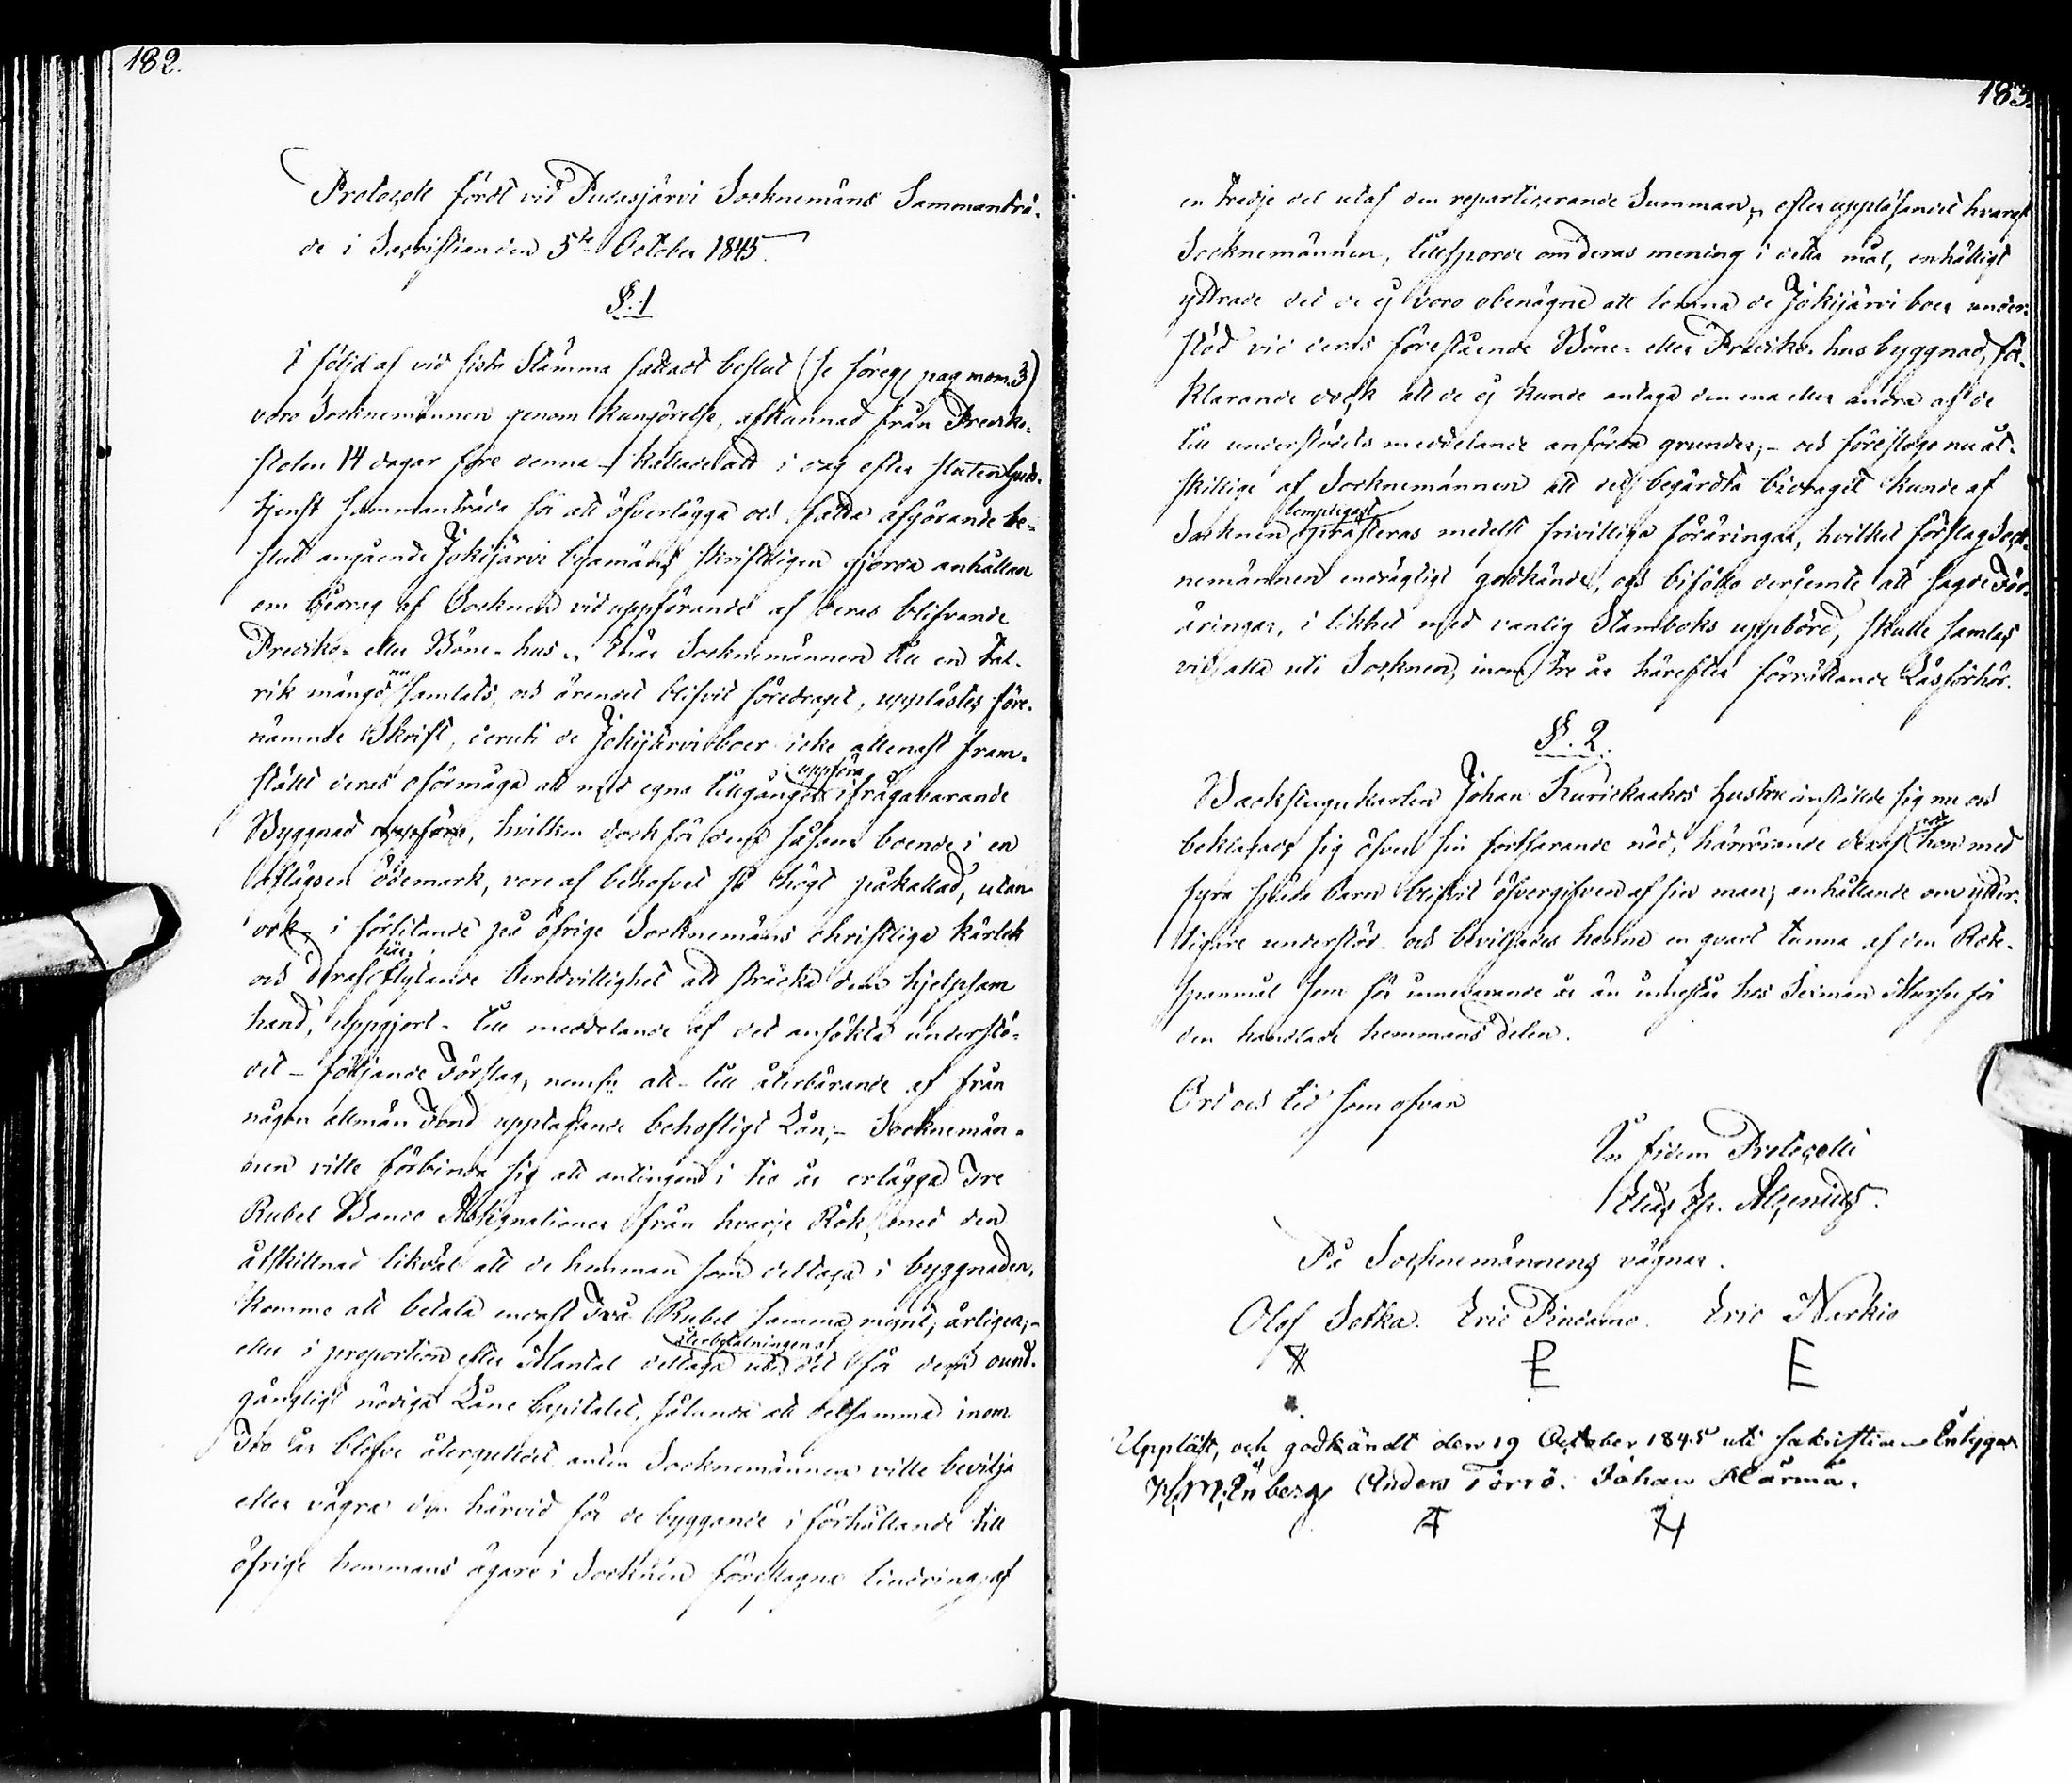 182.
Protocoll fördt vid Pudasjärvi Socknemäns Sammanträ-
de i Sacristian den 5te October 1845.
§. 1
I följd af vid sista Stämma fattadt beslut (se föreg. pag mom. 3)
voro Socknemännen genom kungörelse, afkunnad från Prediko-
stolen 14 dagar före denna - kallade att i dag efter slutad Guds-
tjenst sammanträda för att öfverlägga och fatta afgörande be-
slut angående Jokijärvi byamäns skriftligen gjorda anhållan
om bidrag af Socknen vid uppförandet af deras blifvande
Prediko- eller Böne-hus. Enär Socknemännen till en tal-
rik mängd nu samlats, och ärendet blifvit föredraget, upplästes före-
nämnde Skrift, deruti de Jokijärviboer icke allenast fram-
ställt deras oförmåga att med egna tillgångar uppföra ifrågavarande
Byggnad uppföra, hvilken dock för dem såsom boende i en
aflägsen ödemark, vore af behofvet så högt påkallad, utan
ock, i förlitande på öfrige Socknemäns christliga kärlek
och deraf här flytande beredvillighet att sträcka dem hjelpsam
hand, uppgjort - till meddelande af det ansökta understö-
det - följande Förslag, neml. att - till återbärande af från
någon allmän Fond upptagande behöfligt Lån; - Socknemän-
nen ville förbinda sig att antingen i tio år erlägga Tre
Rubel Banco Assignationer från hvarje Rök, med den
åtskillnad likväl att de hemman som deltaga i byggnaden,
komme att betala endast Två Rubel samma mynt, årligen; -
eller i proportion efter Mantal deltaga uti återbetalningen af det för dem ound-
gängligt nödiga Låne Capitalet, sålunda att detsamma inom
Tio år blefve återguldet antin Socknemännen ville bevilja
eller vägra den härvid för de byggande i förhållande till
öfrige hemmans ägare i Socknen föreslagna lindring af
183.
en tredje del utaf den repartierande Summan, efter uppläsandet hvaraf
Socknemännen, tillsporde om deras mening i detta mål, enhälligt
yttrade det de ej voro obenägne att lemna de Jokijärvi boer under-
stöd vid deras förestående Böne- eller Prediko-hus byggnad, för-
klarande dock att de ej kunde antaga den ena eller andra af de
till understödets meddelande anförda grunder; - och föreslogo nu åt-
skillige af Socknemännen att det begärdta bidraget kunde af
Socknen lempligast presteras medelst frivilliga föräringar, hvilket förslag Sock-
nemännen endrägtigt godkände, och biföllo derjemte att sagde För-
äringar, i likhet med vanlig Stamboks uppbörd, skulle samlas
vid alla uti Socknen, inom tre år härefter förrättande Läsförhör.
§. 2.
Backstugukarlen Johan Kurickaahos hustru inställde sig nu och
beklagade sig öfver sin fortfarande nöd, härrörande deraf att hon med
fyra späda barn blifvit öfvergifven af sin man; anhållande om ytter-
ligare understöd och beviljades henne en qvart tunna af den Rote-
spanmål som för innevarande år än innestår hos Sexman för
den handlade hemmans delen.
Ort och tid som ofvan
In fidem Protocolli
Elias
På Socknemännens vägnar.
Olof Sotka. Eric Pindamo. Eric Narkio
E
Uppläst, och godkändt den 19 October 1845 uti sakristian intygar
Enberg Anders Törrö. Johan Härmä.